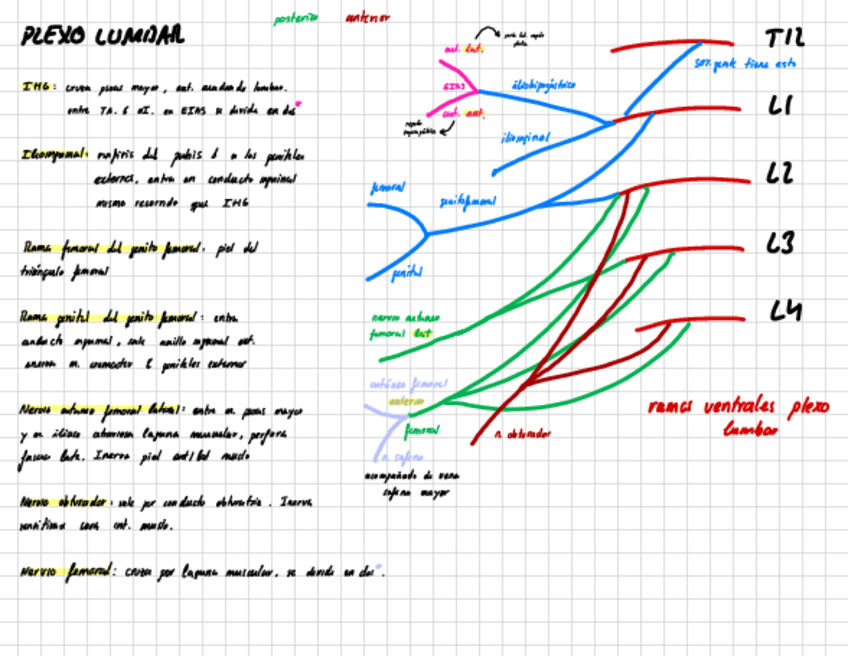 posterior anterior
PLEXO LUMBAR
IHG: cruza psoas mayor, cuadrado lumbar.
entre TA. & OI. en EIAS se divide en dos*
Ilioinguinal: sínfisis del pubis & a los genitales
externos, entra en conducto inguinal
mismo recorrido que IHG
Rama femoral del genito femoral: piel del
triángulo femoral
Rama genital del genito femoral: entra
conducto inguinal, sale anillo inguinal ext.
inerva m. cremáster & genitales externos
Nervio cutáneo femoral lateral: entre m. psoas mayor
y m. iliaco atraviesa laguna muscular, perfora
fascia lata. Inerva piel ant/lat muslo
Nervio obturador: sale por conducto obturatriz. Inerva
sensitiva cara int. muslo.
Nervio femoral: cruza por laguna muscular, se divide en dos*.
lat.
EIAS
ant.
iliohipogástrico
ilioinguinal
femoral
genitofemoral
genital
nervio cutáneo
femoral lat
cutáneo femoral
anterior
femoral
n. safeno
acompañado de vena
safena mayor
n. obturador
T12
gente tiene esto
L1
L2
L3
L4
ramas ventrales plexo
lumbar